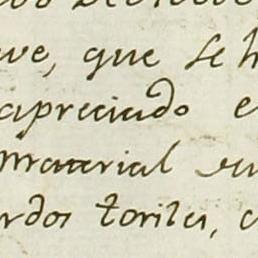 ve, que se h
apreciado e
material su
rdos toriles, c